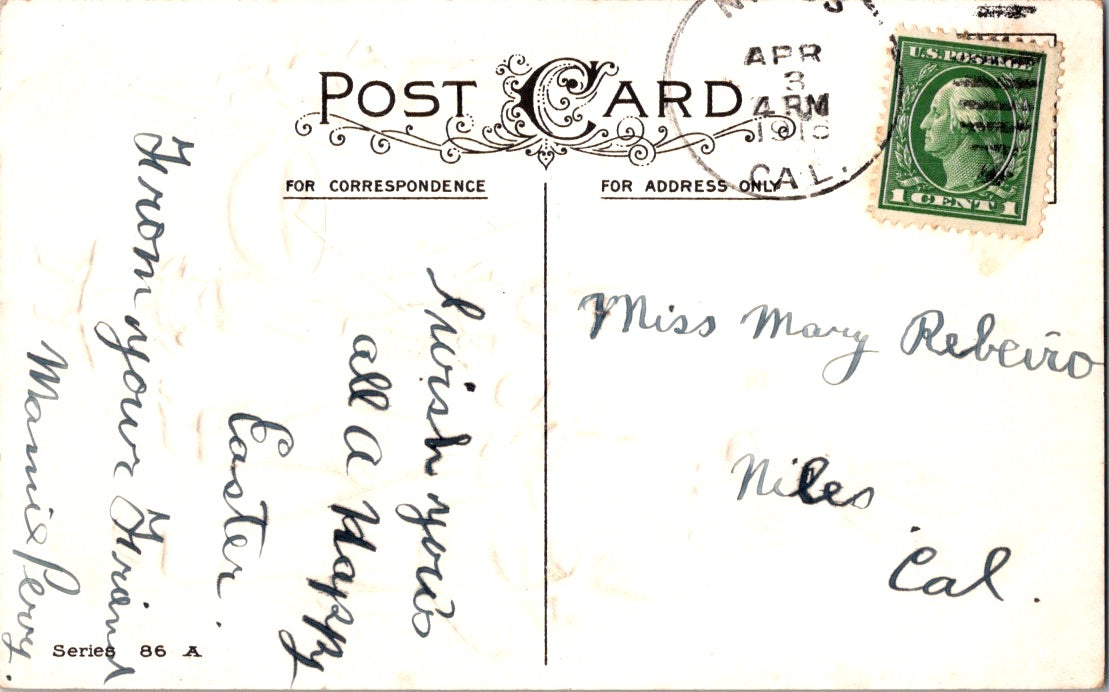 POST CARD
FOR CORRESPONDENCE
FOR ADDRESS ONLY
APR
3
4 PM
CAL.
U.S. POSTAGE
1 CENT 1
I wish you
all a Happy
Easter.
From your Friend
Mamie Perry.
Miss Mary Rebeiro
Niles
Cal.
Series 86 A